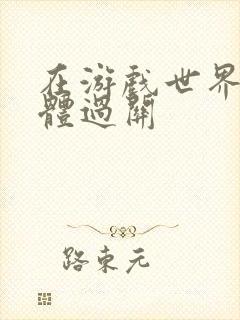 在游戏世界
體過關
路東元